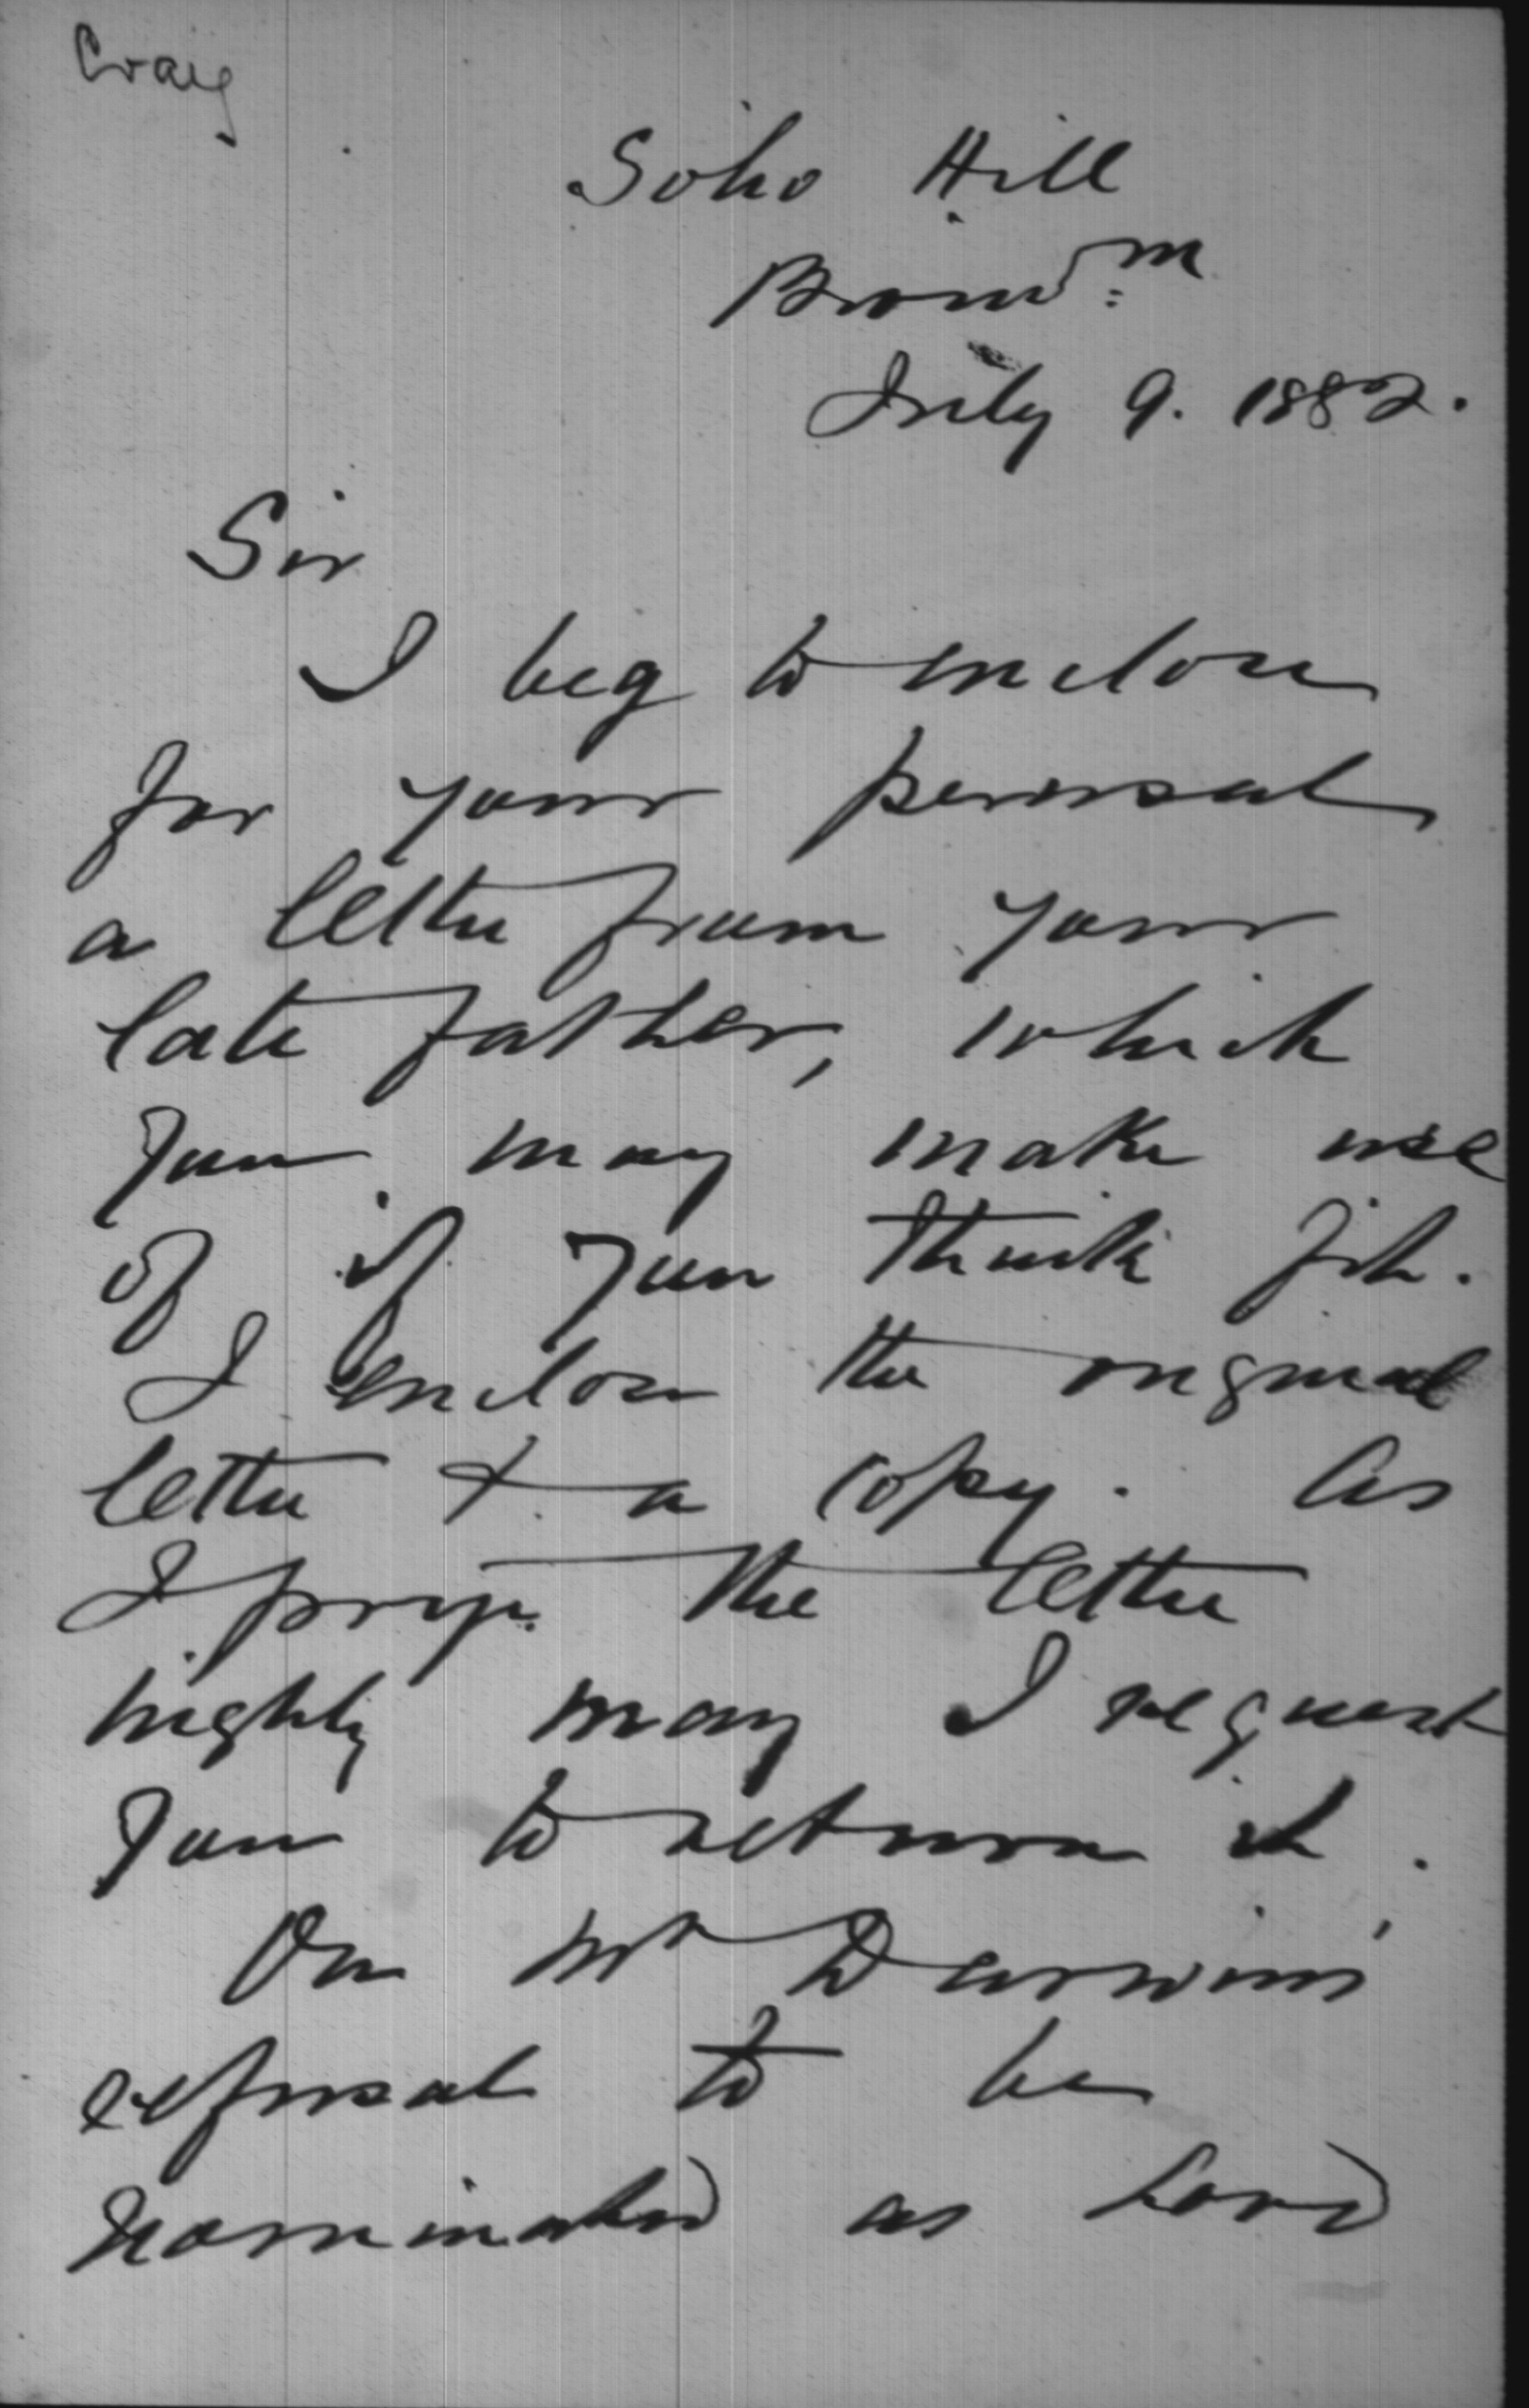 Craig
Soho Hill
July 9. 1882.
Sir
I beg to enclose
for your perusal
a letter from your
late father, which
you may make use
of if you think fit.
I enclose the original
letter & a copy. As
I prize the letter
highly may I request
you to return it.
On Mr Darwin's
refusal to be
nominated as Lord